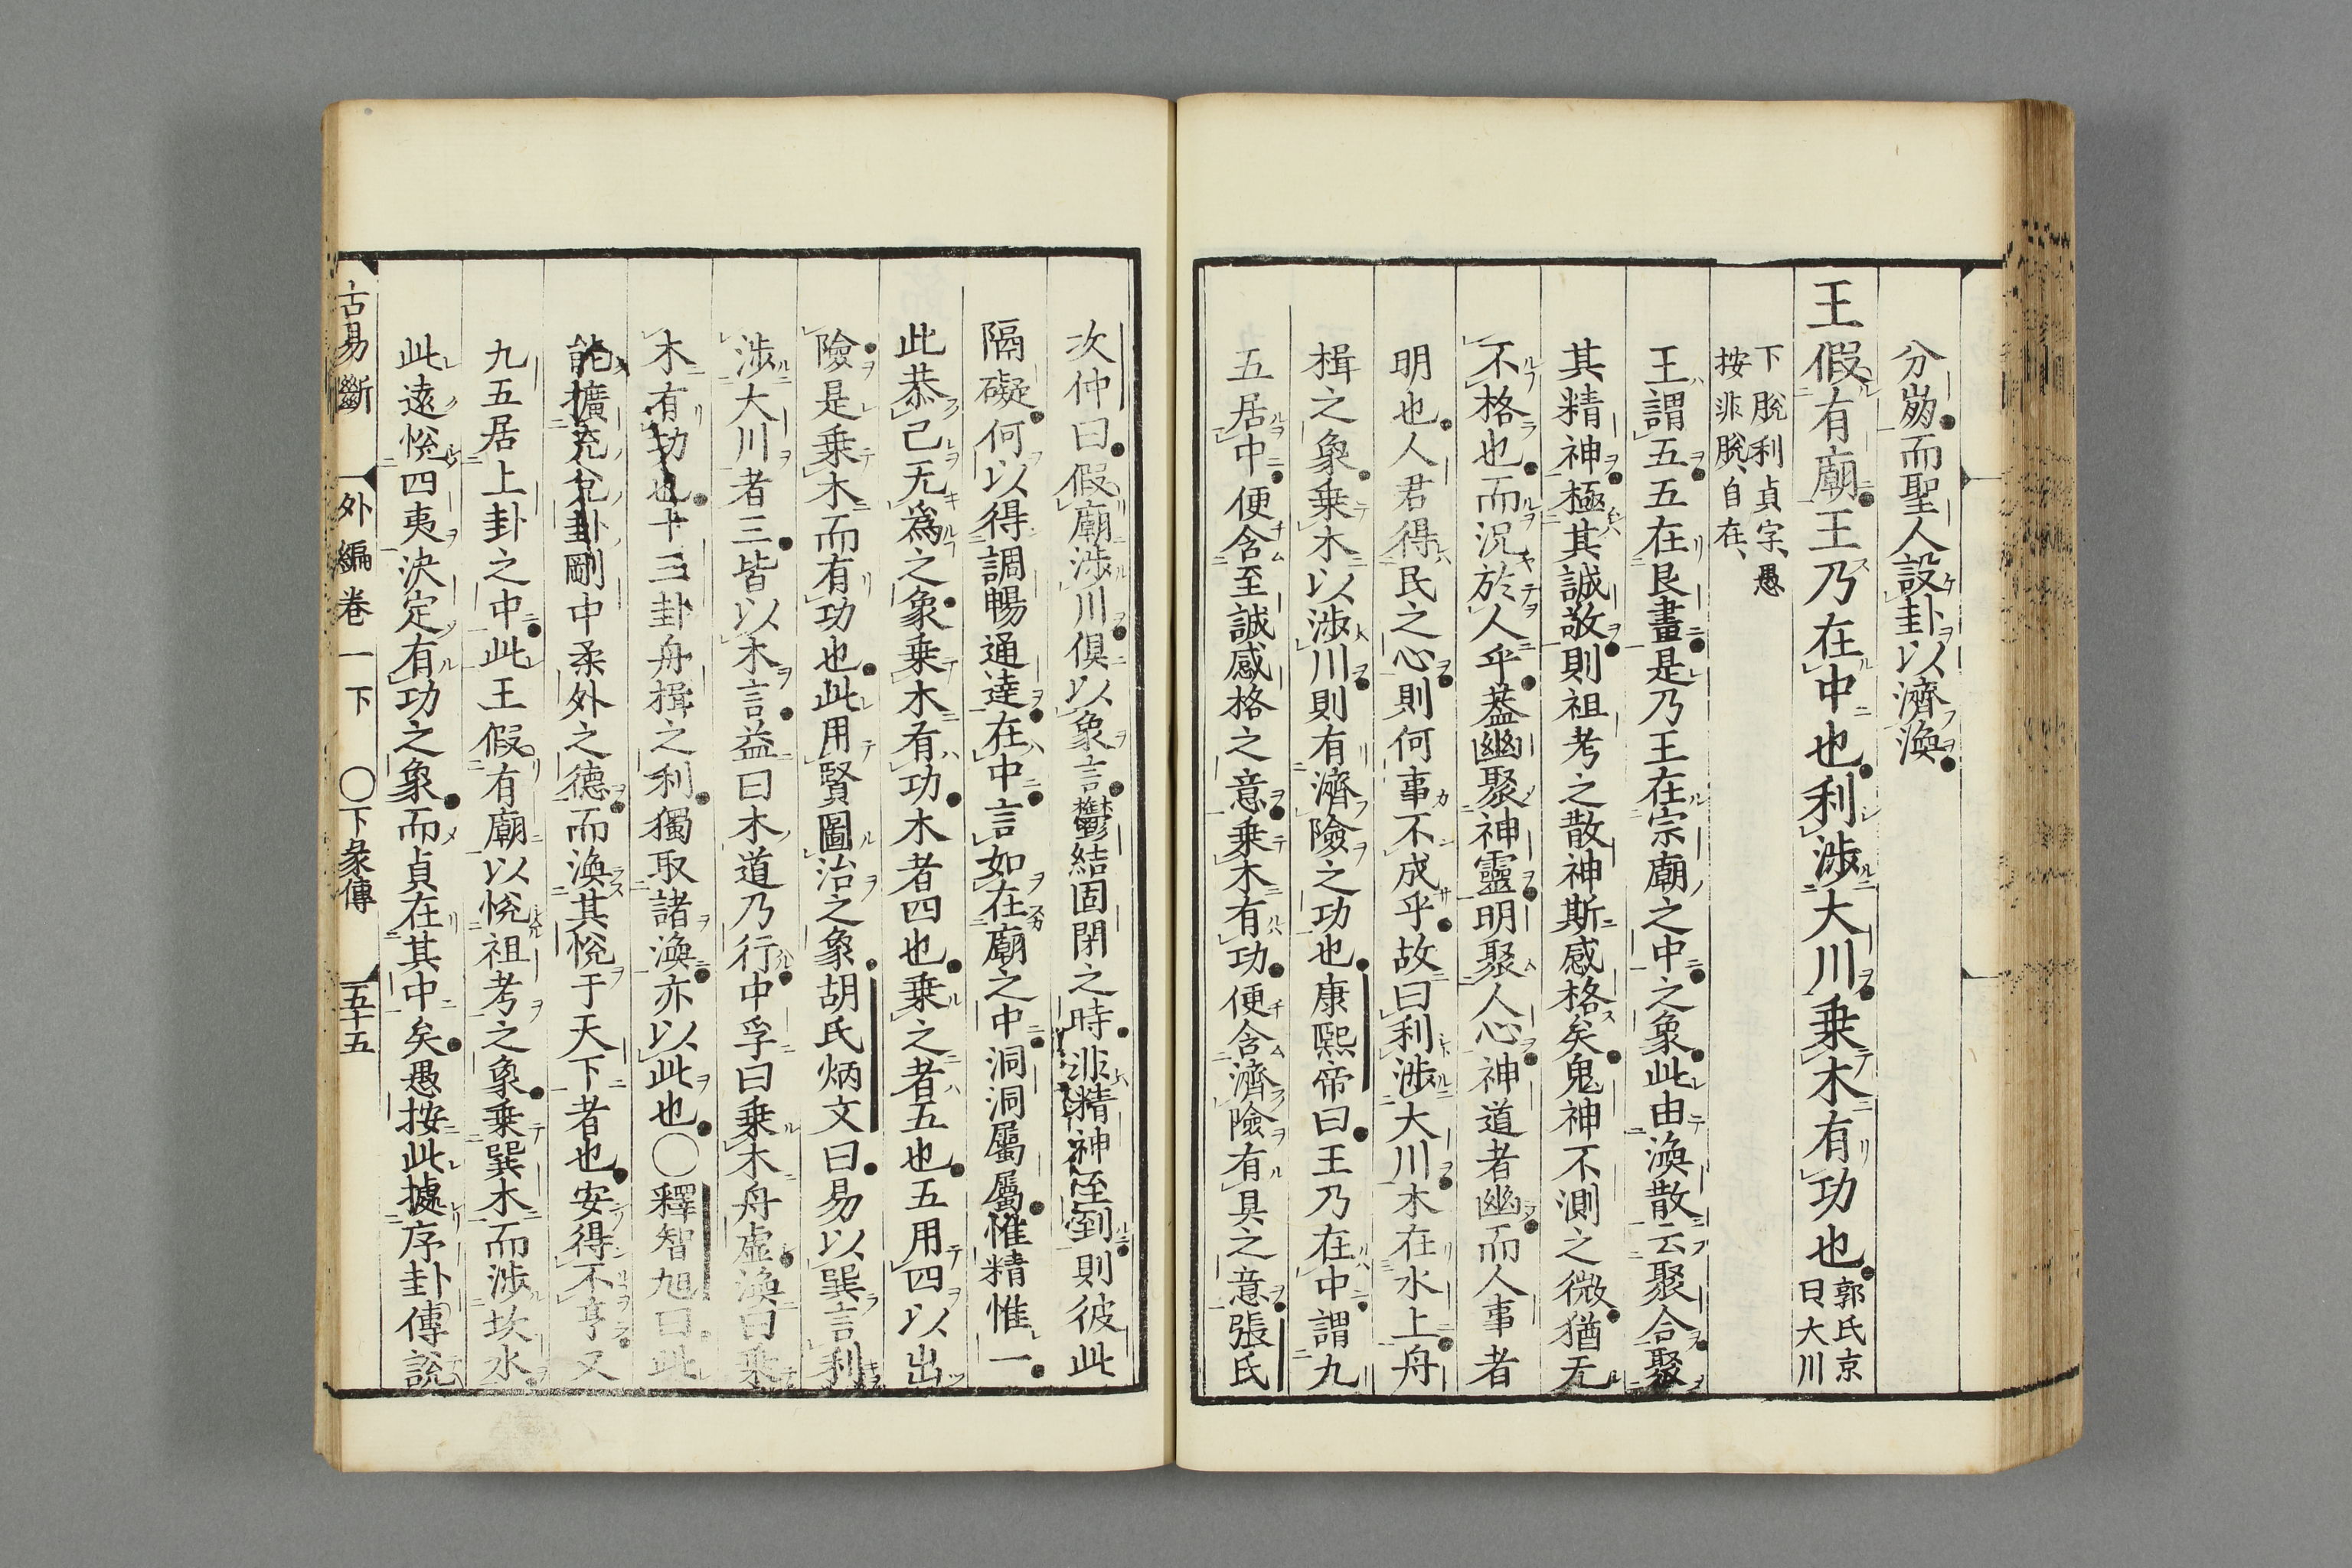 分崩而聖人設卦以濟渙
王假有廟王乃在中也利涉大川乗木有功也郭氏京曰大川
下脫利貞字愚按非脫自在
王謂五五在艮畫是乃王在宗廟之中之象此由渙散云聚合聚
其精神極其誠敬則祖考之散神斯感格矣鬼神不測之微猶无
不格也而況於人乎葢幽聚神靈明聚人心神道者幽而人事者
明也人君得民之心則何事不成乎故曰利涉大川木在水上舟
楫之象乗木以涉川則有濟險之功也康熈帝曰王乃在中謂九
五居中便含至誠感格之意乗木有功便含濟險有具之意張氏
次仲曰假廟涉川俱以象言鬱結固閉之時非精神至到則彼此
隔礙何以得調暢通達在中言如在廟之中洞洞屬屬惟精惟一
此恭己无爲之象乗木有功木者四也乗之者五也五用四以出
險是乗木而有功也此用賢圖治之象胡氏炳文曰易以巽言利
涉大川者三皆以木言益曰木道乃行中孚曰乗木舟虛渙曰乗
木有功也十三卦舟楫之利獨取諸渙亦以此也〇釋智旭曰此
能擴充兌卦剛中柔外之德而渙其悅于天下者也安得不亨又
九五居上卦之中此王假有廟以悅祖考之象乗巽木而涉坎水
此遠悅四夷決定有功之象而貞在其中矣愚按此據序卦傳說
古易斷 外編卷一下 〇下彖傳 五十五